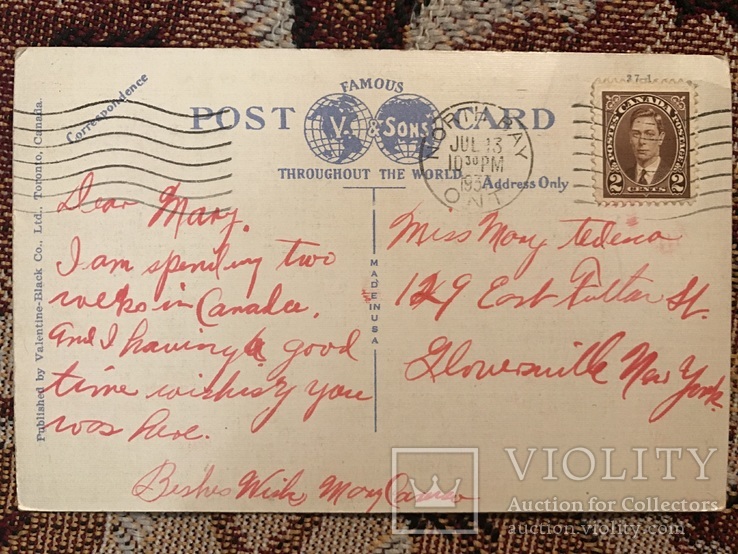 FAMOUS
POST CARD
V. & SONS
THROUGHOUT THE WORLD
Correspondence
Address Only
NORTH BAY
JUL 13
10 30 PM
ONT.
POSTES CANADA POSTAGE
2 CENTS 2
Published by Valentine-Black Co., Ltd., Toronto, Canada.
MADE IN USA
Dear Mary,
I am spending two
weeks in Canada.
And I having a good
time wishing you
was here.
Beshes Wish Mary
Miss Mary Tedesco
129 East Fulton St.
Gloversville New York.
VIOLITY
Auction for Collectors
auction.violity.com